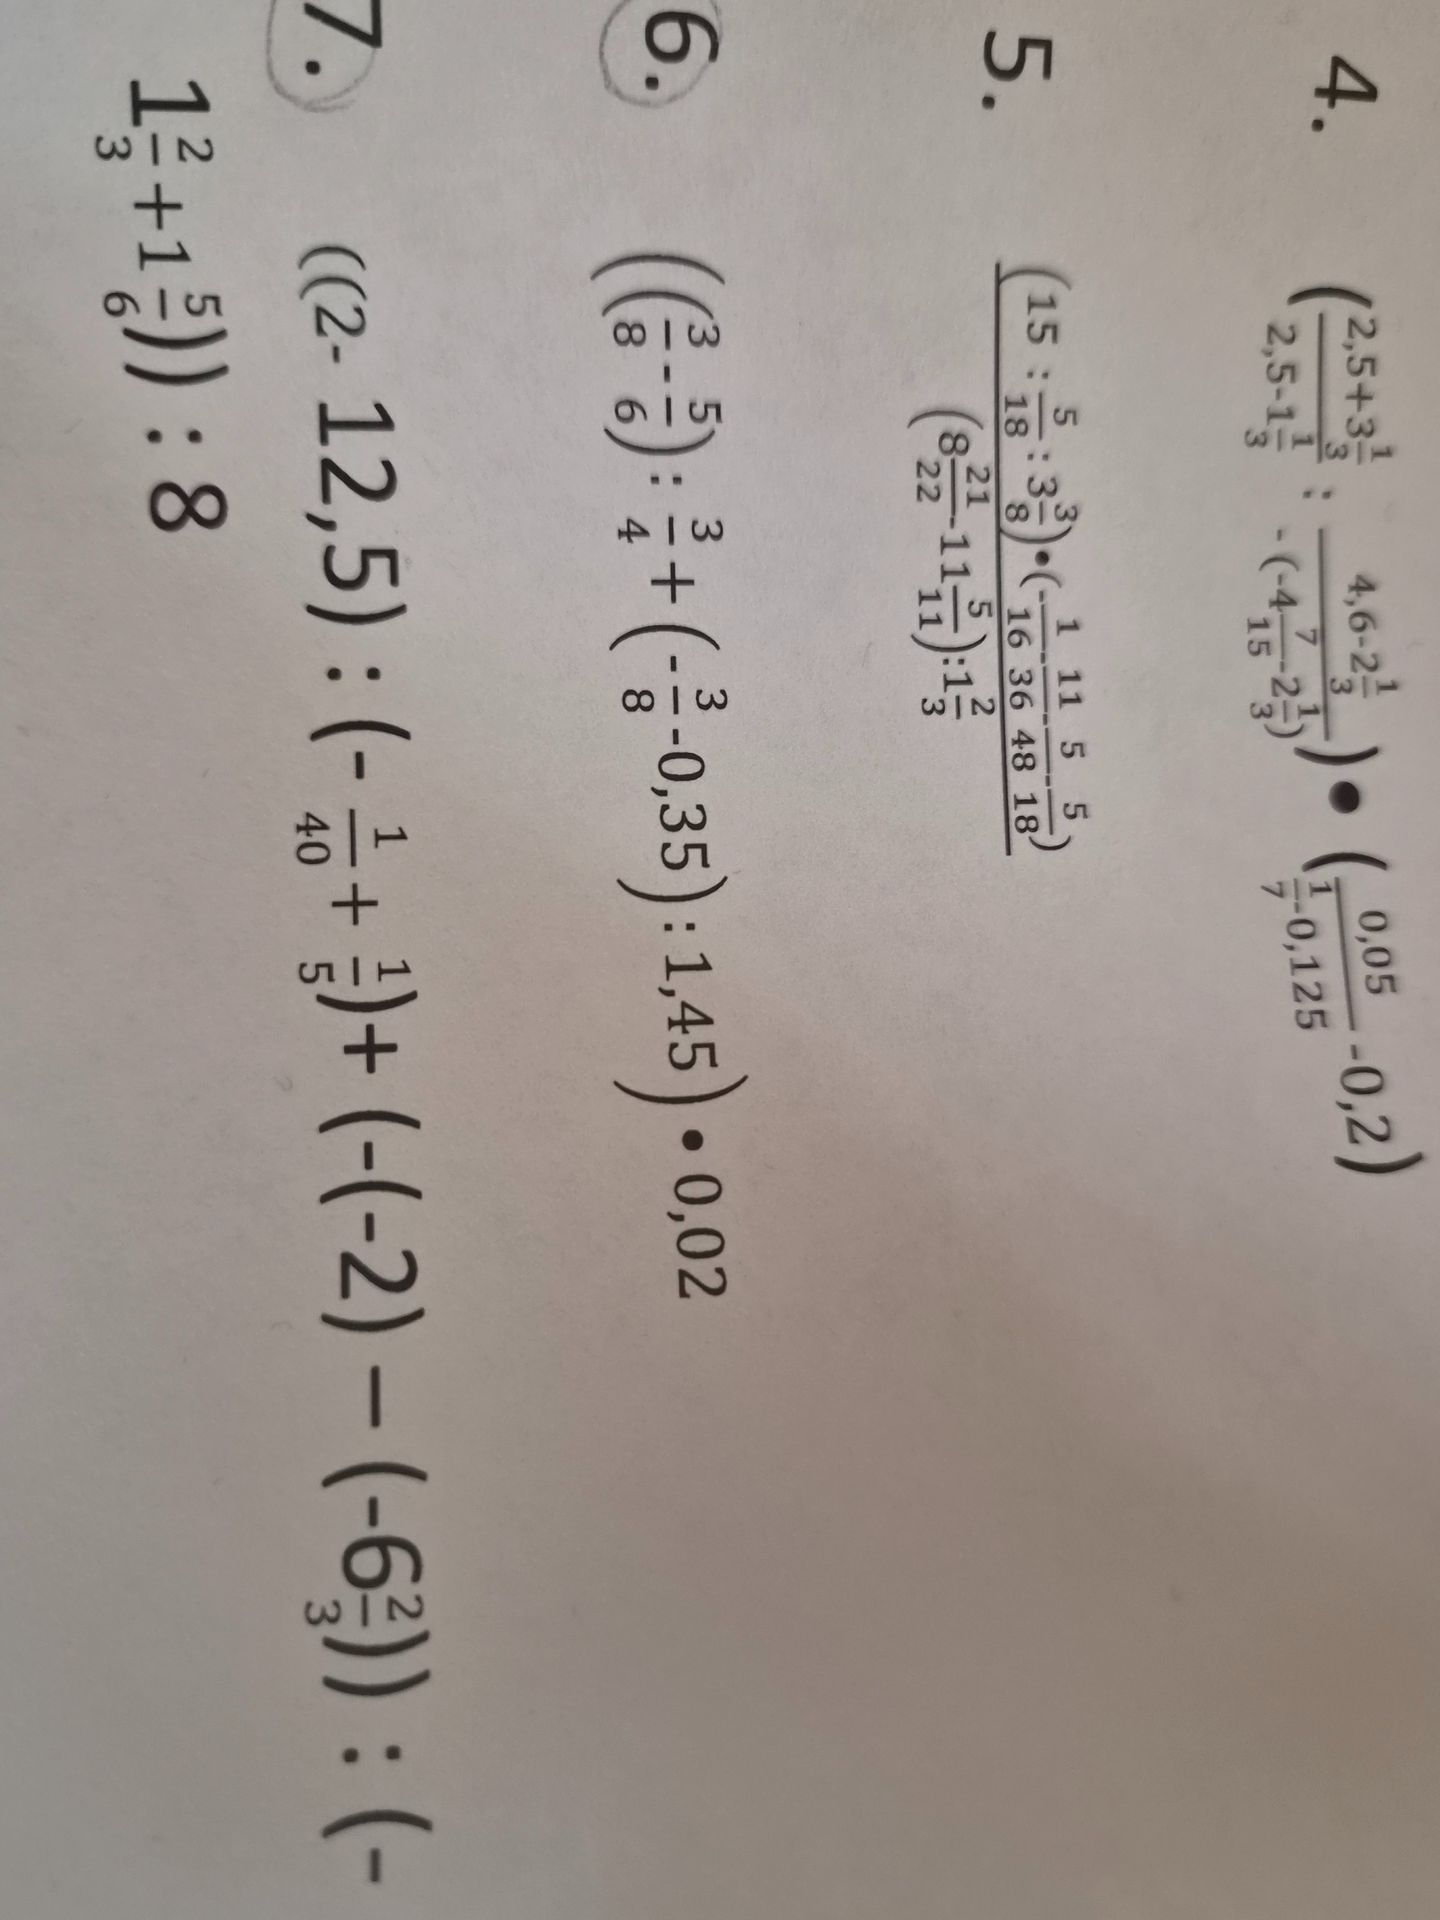 4. ((2,5+3 1/3)/(2,5-1 1/3) : (4,6-2 1/3)/(-(-4 7/15-2 1/3)))•(0,05/(1/7-0,125)-0,2)
5. (15 : 5/18 : 3 3/8)•(-1/16-11/36-5/48-5/18)/(8 21/22-11 5/11):1 2/3
6. ((3/8-5/6): 3/4+(-3/8-0,35):1,45)•0,02
7. ((2- 12,5) : (- 1/40 + 1/5)+ (-(-2) – (-6 2/3))) : (-
1 2/3+1 5/6))) : 8